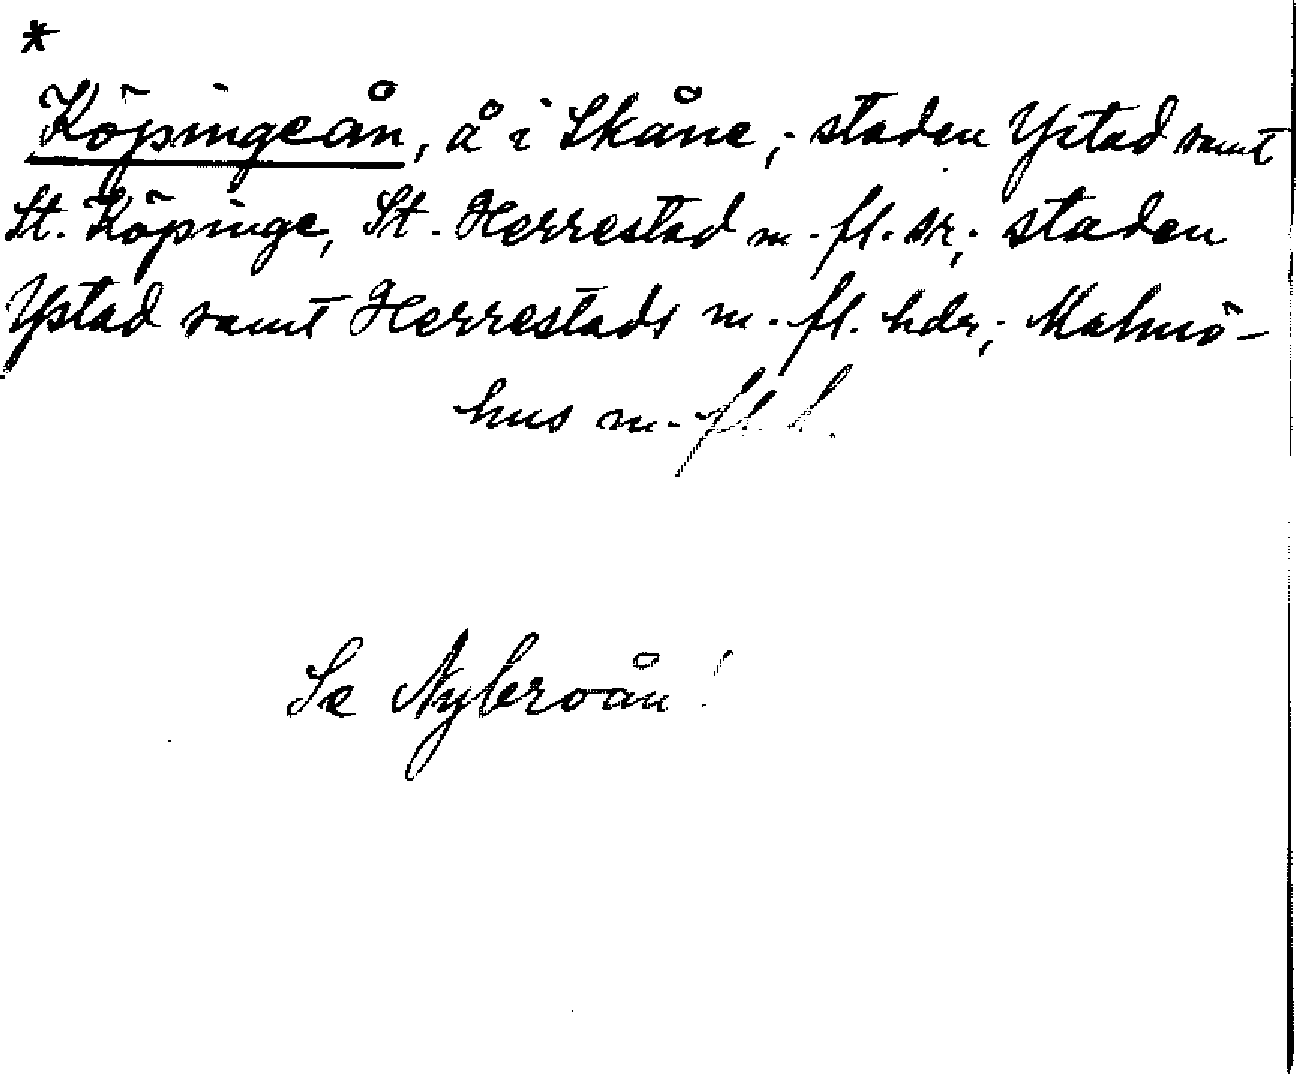 *
Köpingeån, å i Skåne; staden Ystad samt
St. Köpinge, St. Herrestad m. fl. sr; staden
Ystad samt Herrestads m. fl. hdr; Malmö-
hus m. fl. l.
Se Nybroån!